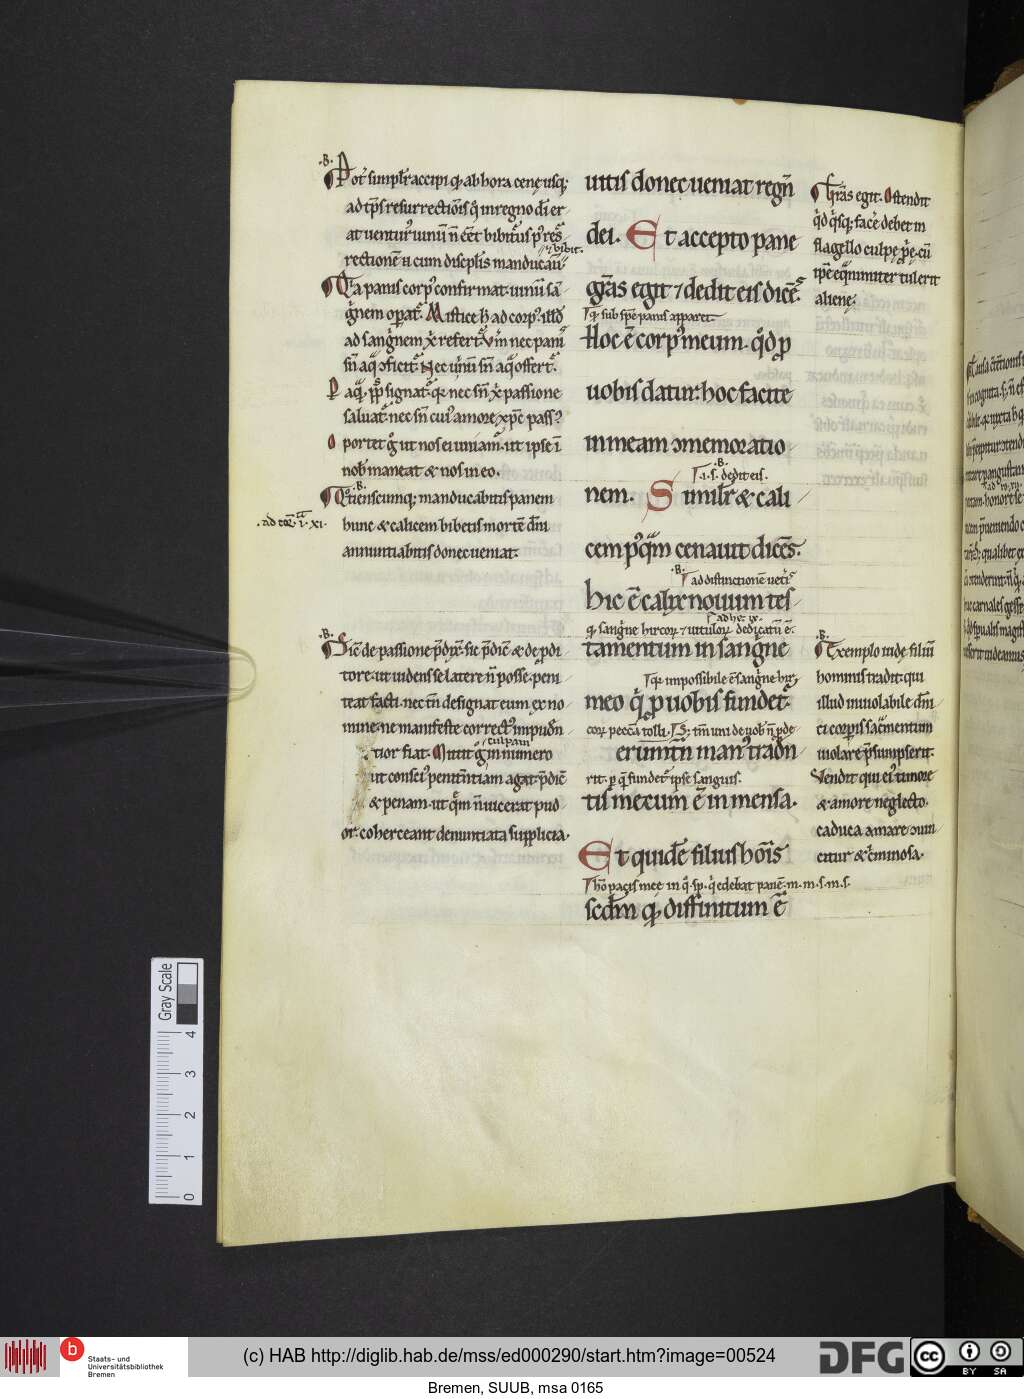 .B.
Pot' simplr accipi q ab hora cenę usq;
ad tp̄s resurrectiōis q̄ in regno dī er
at uentur' uinū n̄ eēt bibitur' p' res
rectionē ū cum discplis manducaū
bibit.
Qa panis corp' confirmat. uinū sā
guinem opat'. Mistice h ad corp'. illd
ad sanguem xp̄i refertur. Vn̄ nec pani
sn̄ aq̄ ɔficit'. Nec uinū sn̄ aq̄ offert'.
P aq̄. ppl's signat'. q̄ nec sn̄ xp̄i passione
saluat'. nec sn̄ cui' amore xp̄c pass'
Oportet g ut nos ei uniam'. ut ipse ī
nob' maneat & nos in eo.
.B.
Quotienscumq; manducabitis panem
.ad cor. ia. xi.
hunc & calicem bibetis mortē dn̄i
annuntiabitis donec ueniat.
.B.
Sic de passione p̄dix'. sic p̄dic̄ & de p̄di
tore. ut uidens se latere n̄ posse. peni
teat facti. nec tn̄ designat eum ex no
mine. ne manifeste correct' impudn̄
culpam
tior fiat. Mittit g in numero
ut consci' penitn̄tiam agat. p̄dic̄
& penam. ut quē n̄ uicerat pud
or. coherceant denuntiata supplicia.
uitis donec ueniat regn̄
dei. Et accepto pane
grās egit 7 dedit eis dicēs.
q sub spē panis apparet
Hoc ē corp' meum. qd p
uobis datur: hoc facite
in meam ɔmemoratio
.B.
.i. s. dedit eis.
nem. Similr & cali
cem p'quam cenauit dicēs.
.B.
ad distinctionē ueteris
hic ē calix nouum tes
ad heb. ix.
q sanguine hircor 7 uitulor. dedicatū ē.
tamentum in sanguine
q impossibile ē sanguine hir
meo qui p uobis fundet'.
cor. peccā tolli. S; tm̄ uni de uob' n̄ pde
erūmtn̄ man' tradn̄
rit. p q fundet' ipse sanguis.
tis mecum ē in mensa.
Et quidē filius hōis
ho pacis mee in q sp. q edebat panē. m. m. s. m. s.
scdm q diffinitum ē
Grās egit. Ostendit
qd quisq; facē debet in
flagello culpę ppē. cū
ipē equanimiter tulerit
alienę.
.B.
Exemplo iudę filiū
hominis tradit. qui
illud inuiolabile dn̄i
ci corpis sac̄mentum
uiolare p̄sumpserit.
Vendit qui ei' timore
& amore neglecto.
caduca amare ɔuin
citur & criminosa.
Gray Scale
4
3
2
1
0
b
Staats- und
Universitätsbibliothek
Bremen
(c) HAB http://diglib.hab.de/mss/ed000290/start.htm?image=00524
DFG
cc
BY SA
Bremen, SUUB, msa 0165